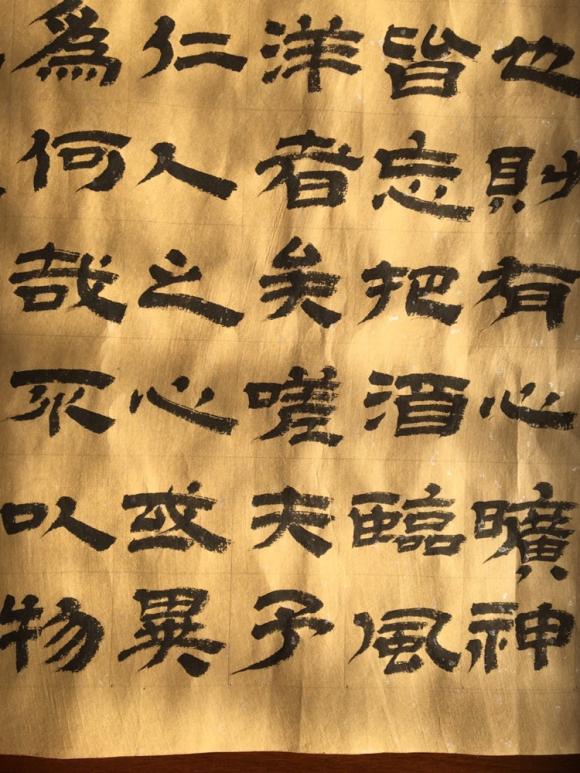 也則有心曠神
皆忘把酒臨風
洋者矣嗟夫予
仁人之心或異
為何哉不以物